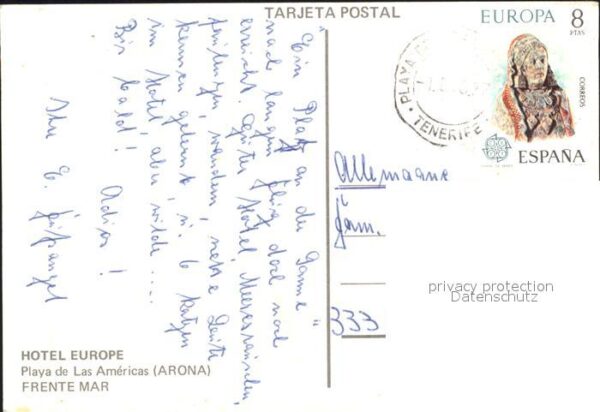 TARJETA POSTAL
EUROPA 8
PTAS
CORREOS
ESPAÑA
PLAYA
TENERIFE
"Ein Platz an der Sonne"
nach langem Flug doch noch
erreicht. Gutes Hotel, Meeresrauschen,
wandern, nette Leute
kennen gelernt, 6 Katzen
im Hotel, aber wilde....
Bis bald! Adios!
Ihre E.
Allemagne
Fam.
333
privacy protection
Datenschutz
HOTEL EUROPE
Playa de Las Américas (ARONA)
FRENTE MAR